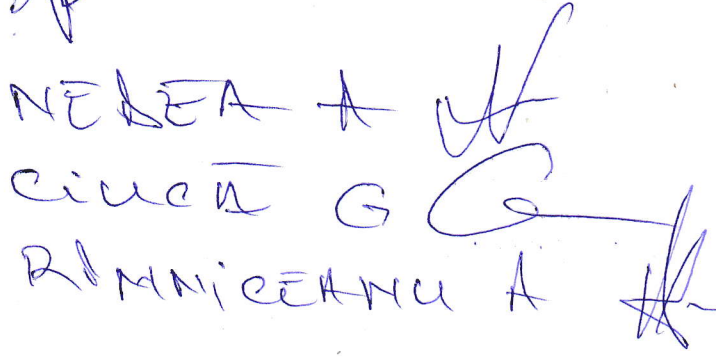 NEDEA A
CIUCĂ G
RÎMNICEANU A